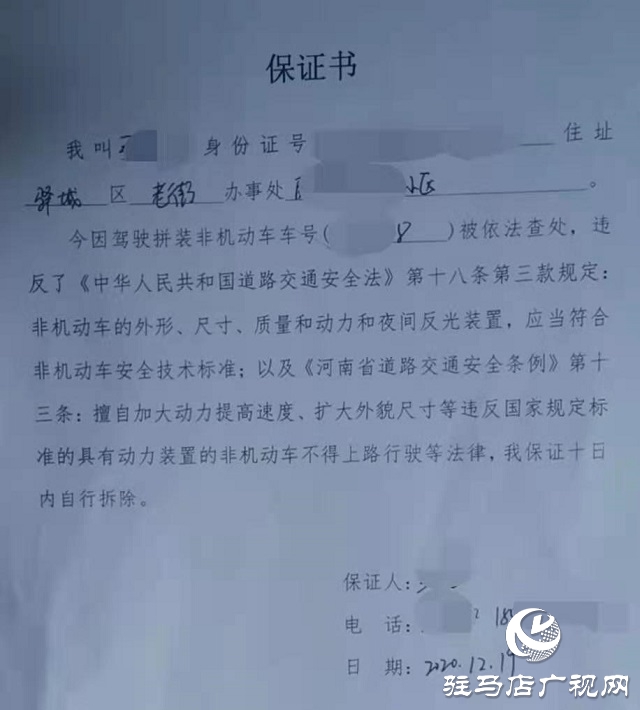 保证书
我叫 身份证号 住址
驿城 区 老街 办事处 小区 。
今因驾驶拼装非机动车车号( 8 )被依法查处，违
反了《中华人民共和国道路交通安全法》第十八条第三款规定：
非机动车的外形、尺寸、质量和动力和夜间反光装置，应当符合
非机动车安全技术标准；以及《河南省道路交通安全条例》第十
三条：擅自加大动力提高速度、扩大外貌尺寸等违反国家规定标
准的具有动力装置的非机动车不得上路行驶等法律，我保证十日
内自行拆除。
保证人：
电 话： 18
日 期：2020.12.19
驻马店广视网